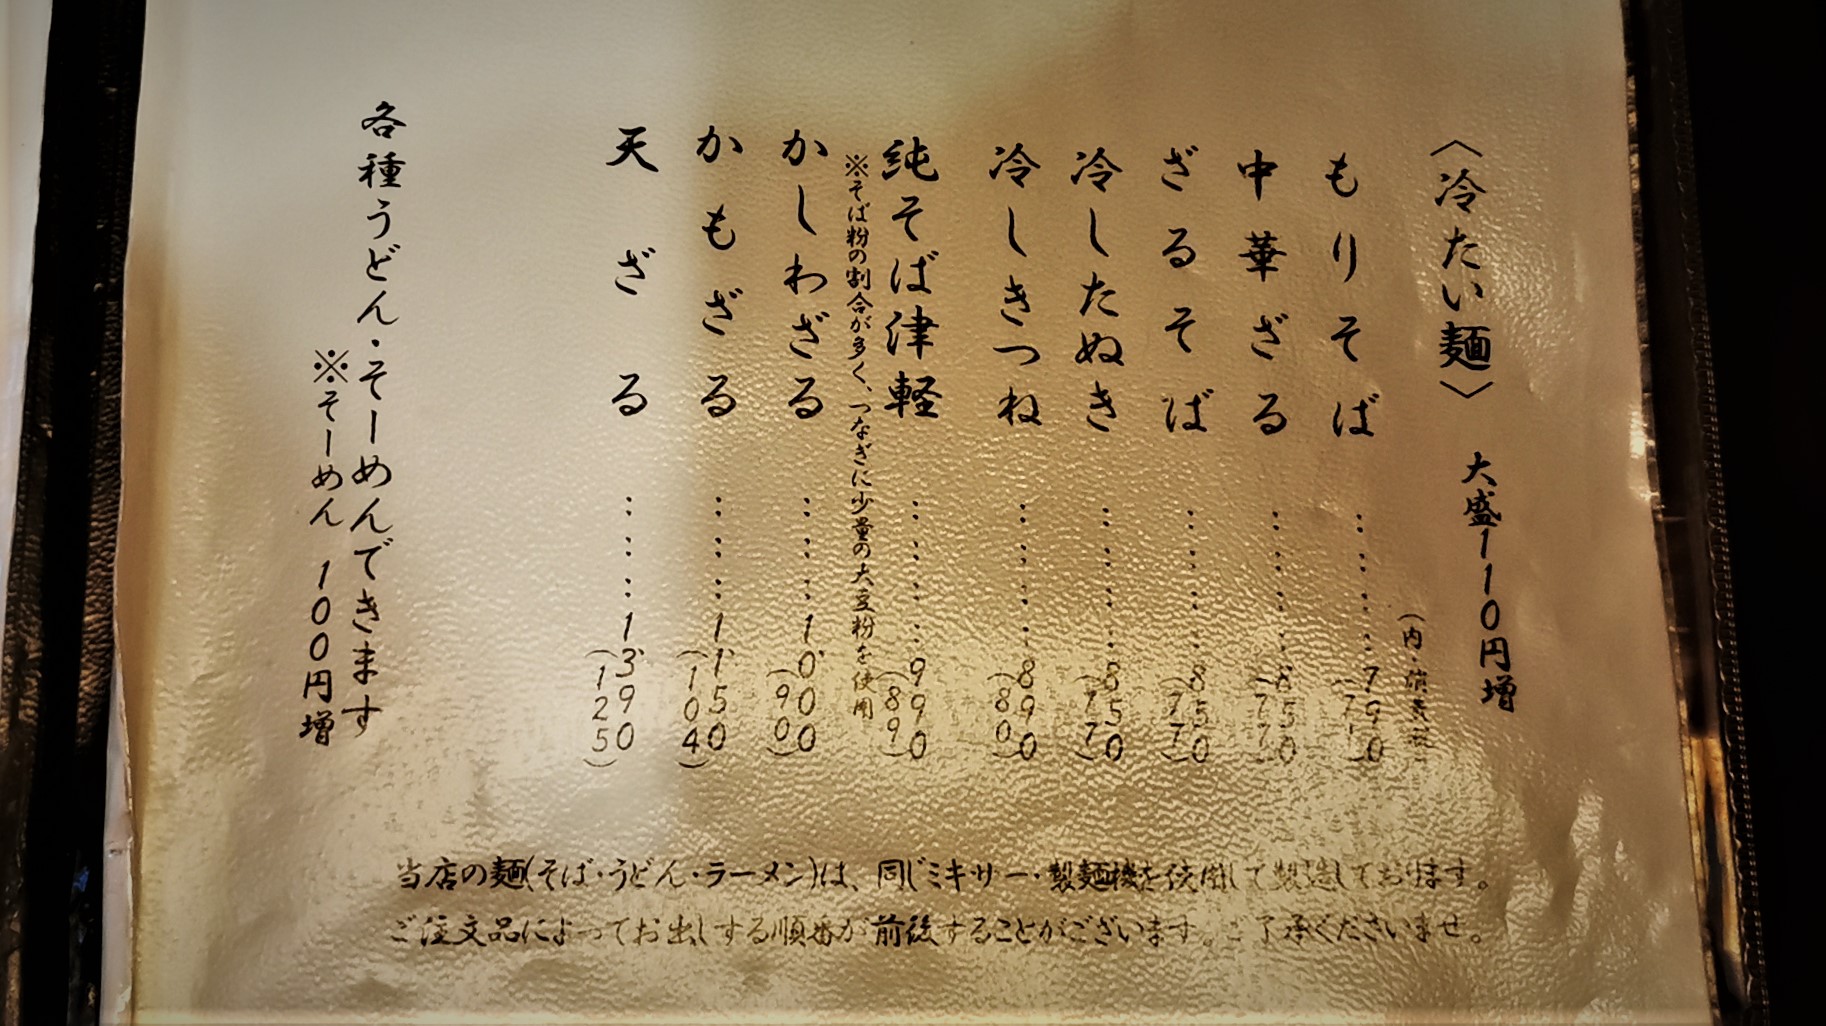 〈冷たい麺〉 大盛110円増
(内・消費税)
もりそば ……… 790 (71)
中華ざる ……… 850 (77)
ざるそば ……… 850 (77)
冷したぬき ……… 850 (77)
冷しきつね ……… 890 (80)
純そば津軽 ……… 990 (89)
※そば粉の割合が多く、つなぎに少量の大豆粉を使用
かしわざる ……… 1,000 (90)
かもざる ……… 1,150 (104)
天ざる ……… 1,390 (125)
各種うどん・そーめんできます
※そーめん 100円増
当店の麺(そば・うどん・ラーメン)は、同じミキサー・製麺機を使用して製造しております。
ご注文品によってお出しする順番が前後することがございます。ご了承くださいませ。